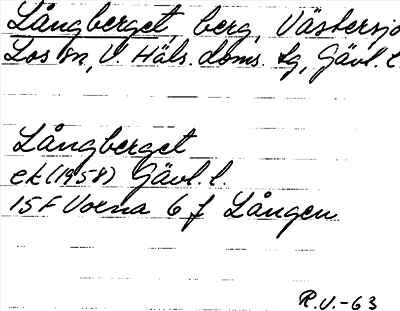 Långberget, berg, Västersjö
Los sn, V. Häls. doms. tg, Gävl. l.
Långberget
ek (1958) Gävl. l.
15F Voxna 6 f Lången
R.V.-63